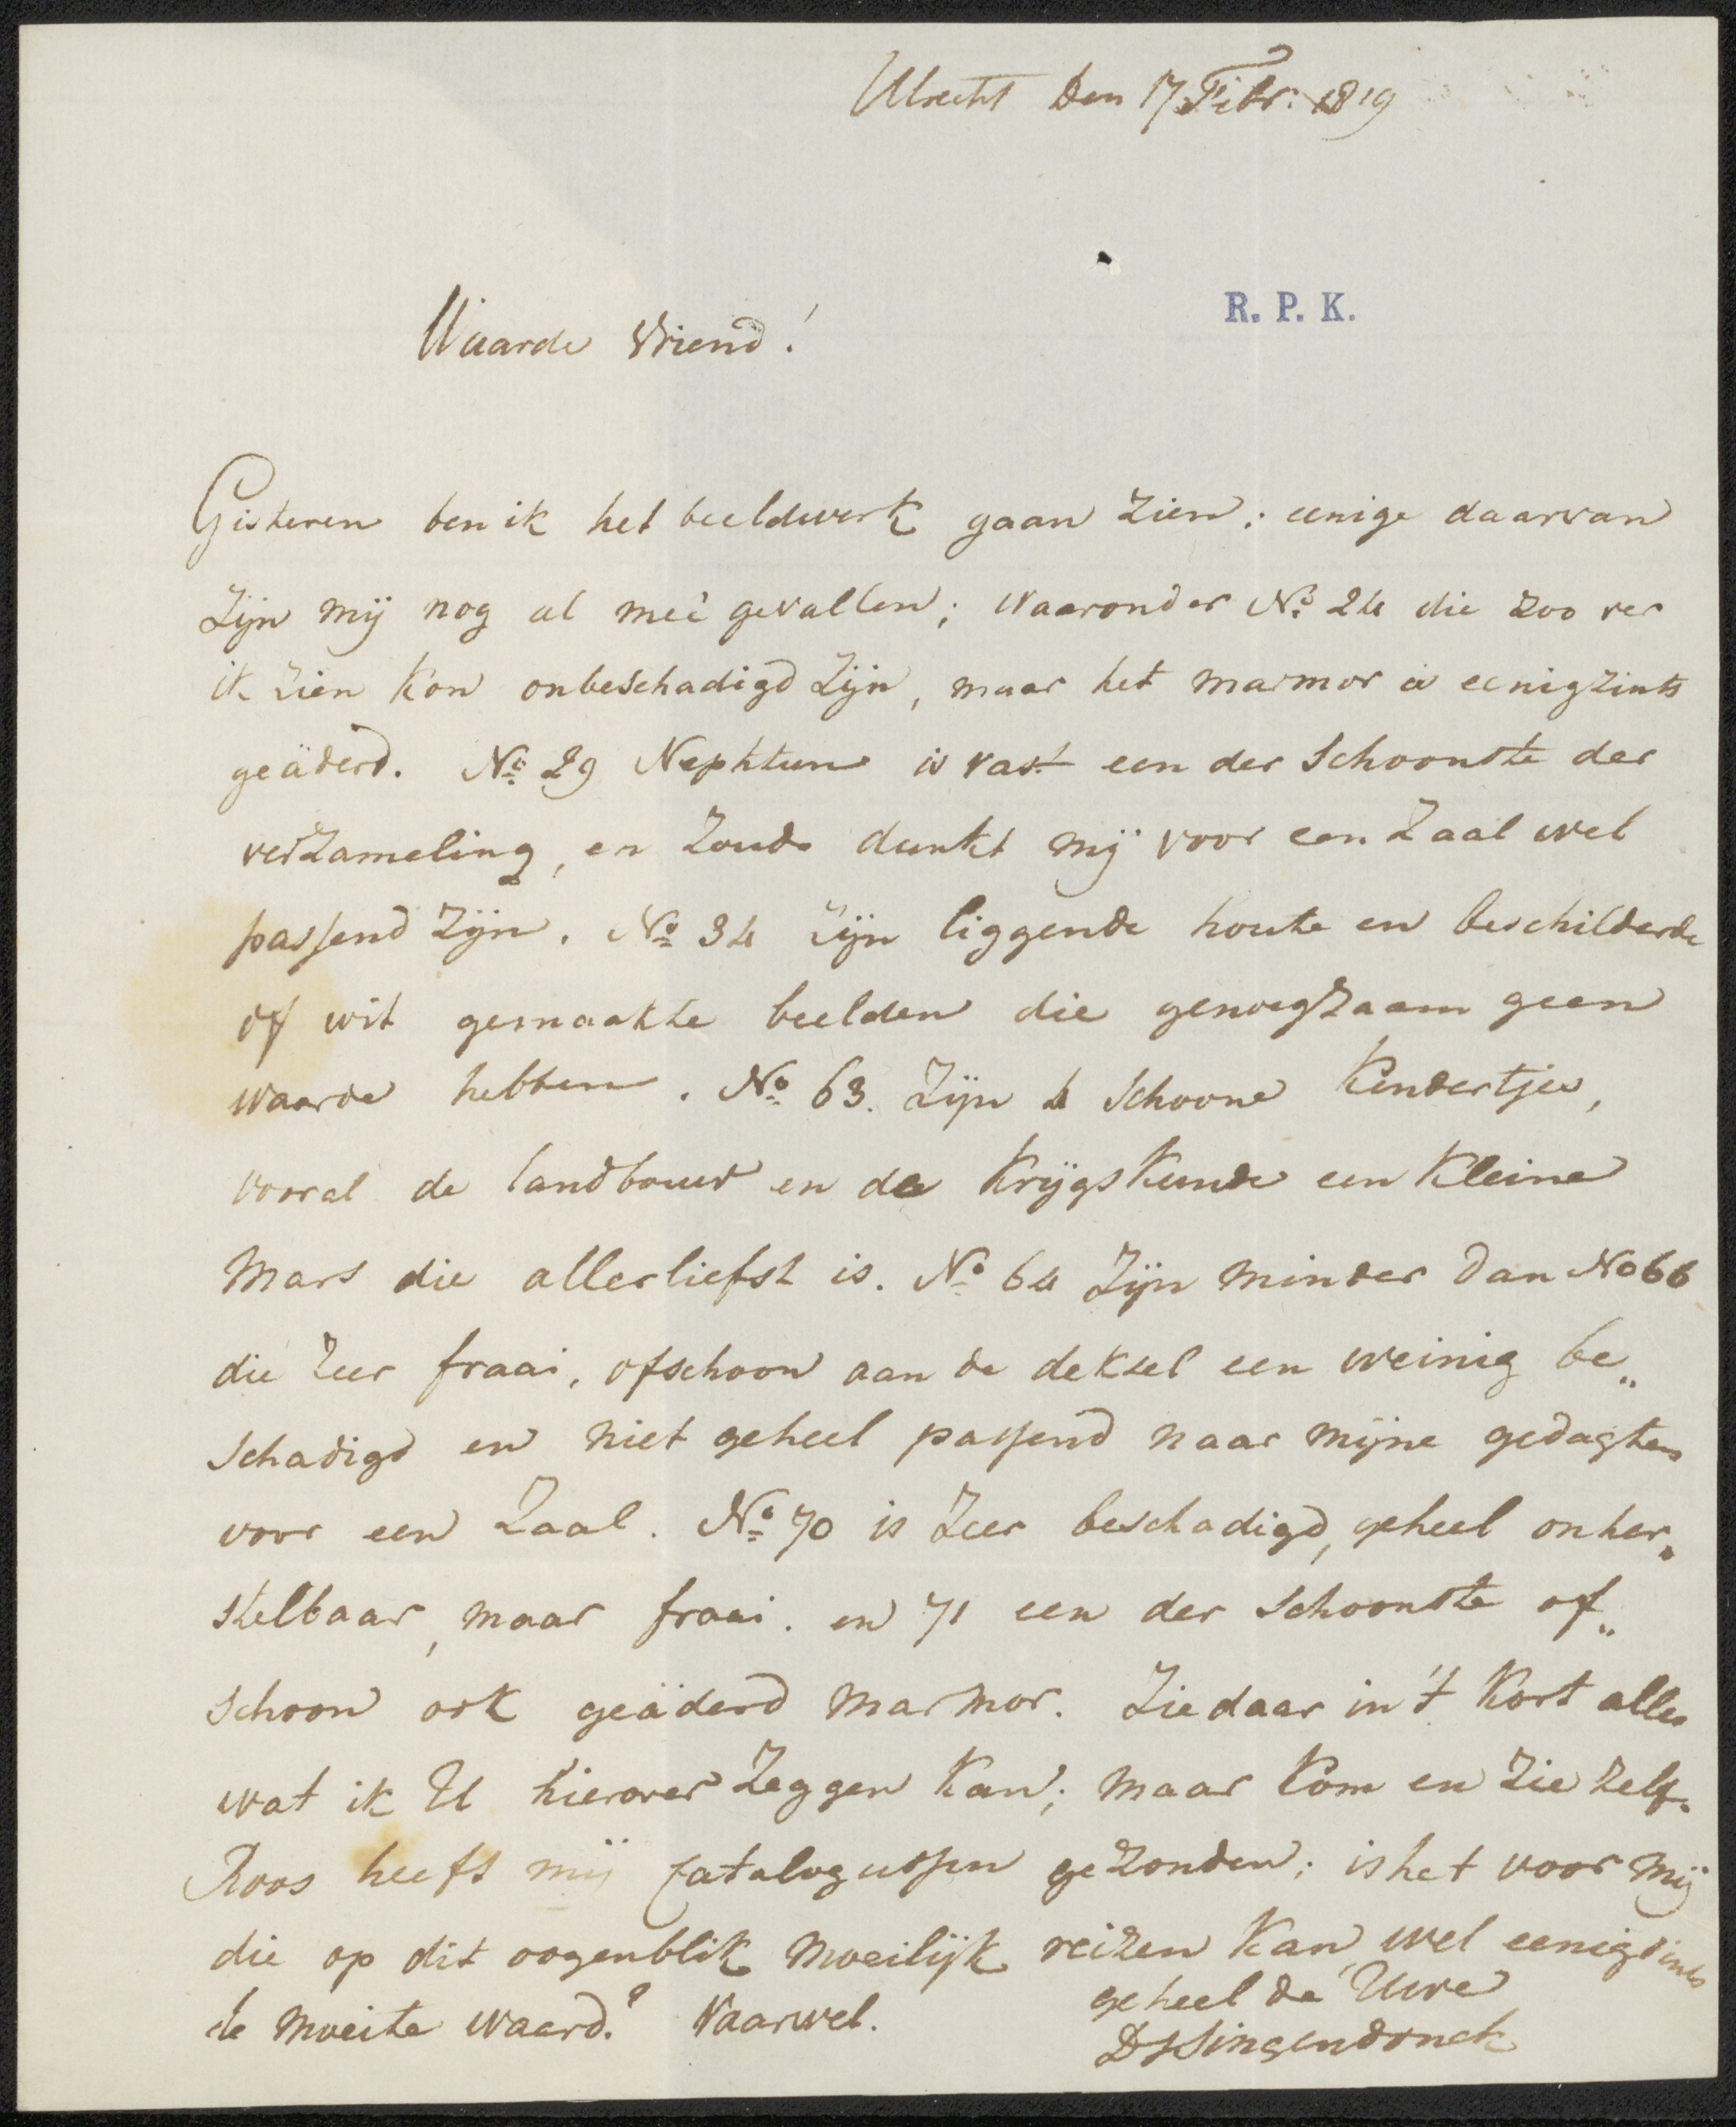 Utrecht den 17 Febr. 1819
R. P. K.
Waarde Vriend!
Gisteren ben ik het beeldwerk gaan zien; eenige daarvan
zijn mij nog al meê gevallen; waaronder No. 24 die zoo ver
ik zien kon onbeschadigd zijn, maar het marmor is eenigzints
geäderd. No. 29 Nephtun is vast een der schoonste der
verzameling, en zoude dunkt mij voor een zaal wel
passend zijn. No. 34 zijn liggende houte en beschilderde
of wit gemaakte beelden die genoegzaam geen
waarde hebben. No. 63. zijn 4 schoone kindertjes,
vooral de landbouw en de krijgskunde een kleine
Mars die allerliefst is. No. 64 zijn minder dan No 66
die zeer fraai, ofschoon aan de deksel een weinig be„
schadigd en niet geheel passend naar mijne gedagten
voor een zaal. No. 70 is zeer beschadigd, geheel onher„
stelbaar, maar fraai. en 71 een der schoonste of„
schoon ook geäderd marmor. Ziedaar in 't kort alles
wat ik U hierover zeggen kan; maar kom en zie zelf.
Roos heeft mij catalogussen gezonden; is het voor mij
die op dit oogenblik moeilijk reizen kan, wel eenigzints
de moeite waard? Vaarwel.
geheel de Uwe
DJSingendonck